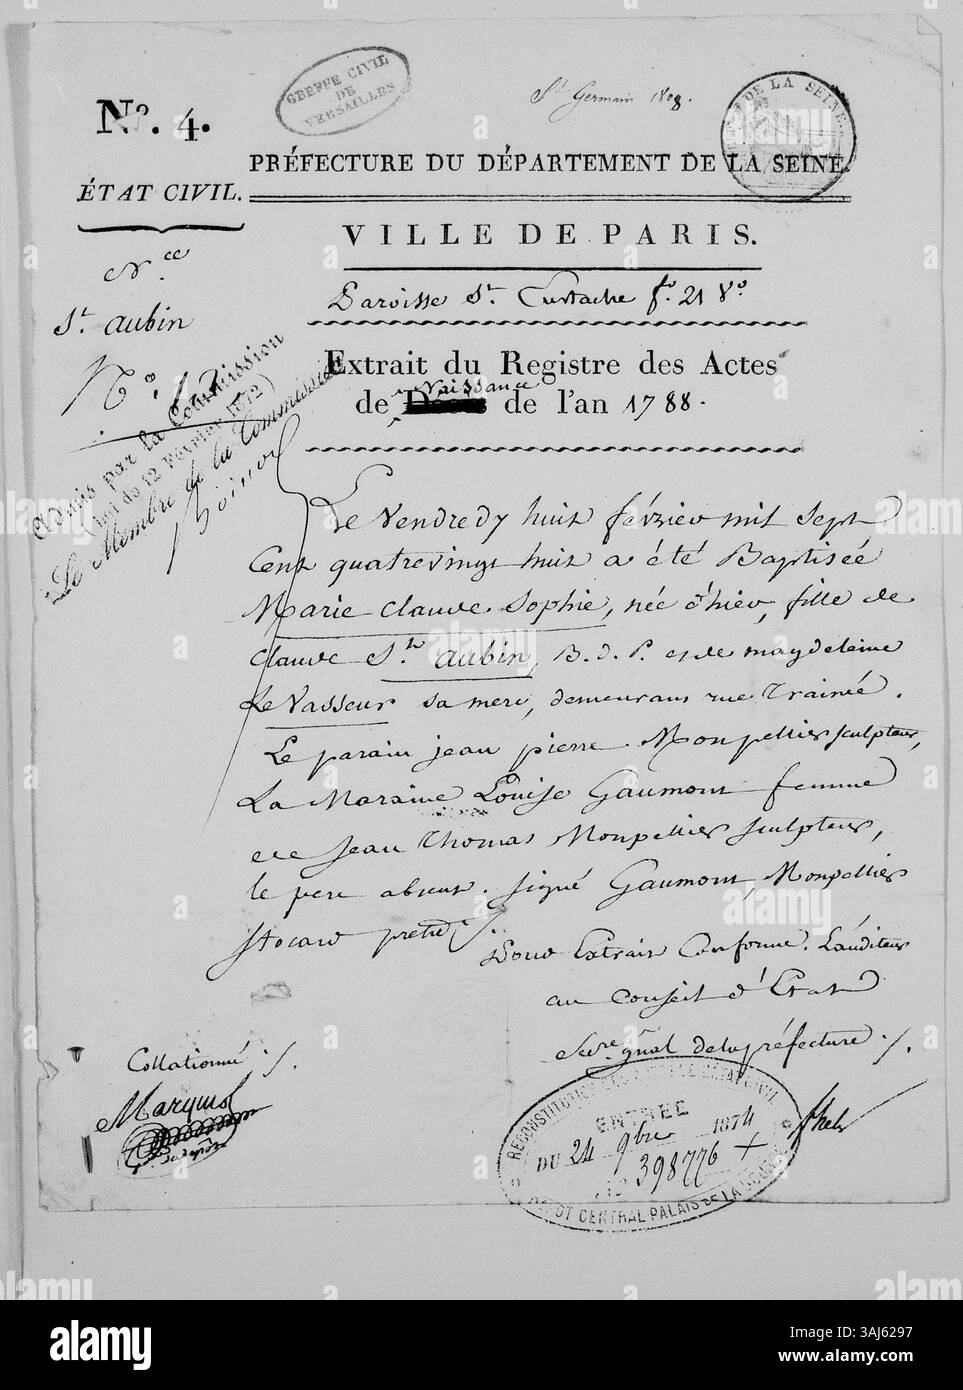 GREFFE CIVIL
DE
VERSAILLES
St Germain 1808.
DE LA SEINE
No. 4.
PRÉFECTURE DU DÉPARTEMENT DE LA SEINE.
ÉTAT CIVIL.
VILLE DE PARIS.
Nce
St. aubin
Paroisse St. Eustache fo. 21 Vo
Extrait du Registre des Actes
de Naissance de l'an 1788.
Admis par la Commission
Loi du 12 Février 1872
Le Membre de la Commission
Le Vendredy huit février mil sept
Cent quatrevingt huit a été Baptisée
Marie Claude Sophie, née d'hier, fille de
Claude St. aubin, B. d. P. et de magdeleine
Le Vasseur sa mere, demeurans rue Trainée.
Le parain jean pierre Monpellier sculpteur,
La Maraine Louise Gaumont femme
de Jean Thomas Monpellier sculpteur,
le pere absent. signé Gaumont, Monpellier
Stocard pretre ./.
Pour Extrait Conforme. L'auditeur
au Conseil d'Etat
Secre. gnal dela préfecture ./.
Collationné ./.
RECONSTITUTION DES ACTES DE L'ÉTAT CIVIL
ENTRÉE
DU 24 9bre 1874
No 398776 +
DÉPOT CENTRAL PALAIS DE LA BOURSE
alamy
Image ID: 3AJ6297
www.alamy.com